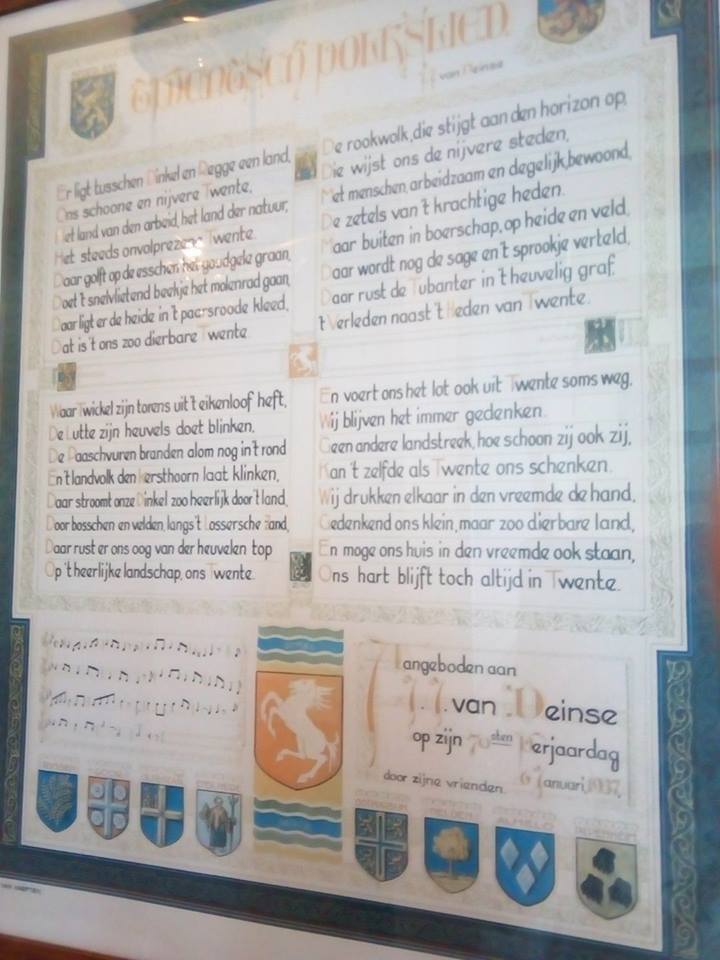 Twentsch Volkslied
van Deinse
Er ligt tusschen Dinkel en Regge een land,
Ons schoone en nijvere Twente,
Het land van den arbeid, het land der natuur,
Het steeds onvolprezen Twente.
Daar golft op de esschen het goudgele graan,
Doet 't snelvlietend beekje het molenrad gaan,
Daar ligt er de heide in 't paarsroode kleed,
Dat is 't ons zoo dierbare Twente.
De rookwolk, die stijgt aan den horizon op,
Die wijst ons de nijvere steden,
Met menschen, arbeidzaam en degelijk, bewoond,
De zetels van 't krachtige heden.
Maar buiten in boerschap, op heide en veld,
Daar wordt nog de sage en 't sprookje verteld,
Daar rust de Tubanter in 't heuvelig graf.
't Verleden naast 't Heden van Twente.
Waar Twickel zijn torens uit 't eikenloof heft,
De Lutte zijn heuvels doet blinken,
De Paaschvuren branden alom nog in 't rond
En 't landvolk den kersthoorn laat klinken,
Daar stroomt onze Dinkel zoo heerlijk door 't land,
Door bosschen en velden, langs 't Lossersche Zand,
Daar rust er ons oog van der heuvelen top
Op 't heerlijke landschap, ons Twente.
En voert ons het lot ook uit Twente soms weg.
Wij blijven het immer gedenken.
Geen andere landstreek, hoe schoon zij ook zij,
Kan 't zelfde als Twente ons schenken.
Wij drukken elkaar in den vreemde de hand,
Gedenkend ons klein, maar zoo dierbare land,
En moge ons huis in den vreemde ook staan,
Ons hart blijft toch altijd in Twente.
Aangeboden aan
J.J. van Deinse
op zijn 70sten Verjaardag
door zijne vrienden. 6 Januari, 1937.
ALMELO